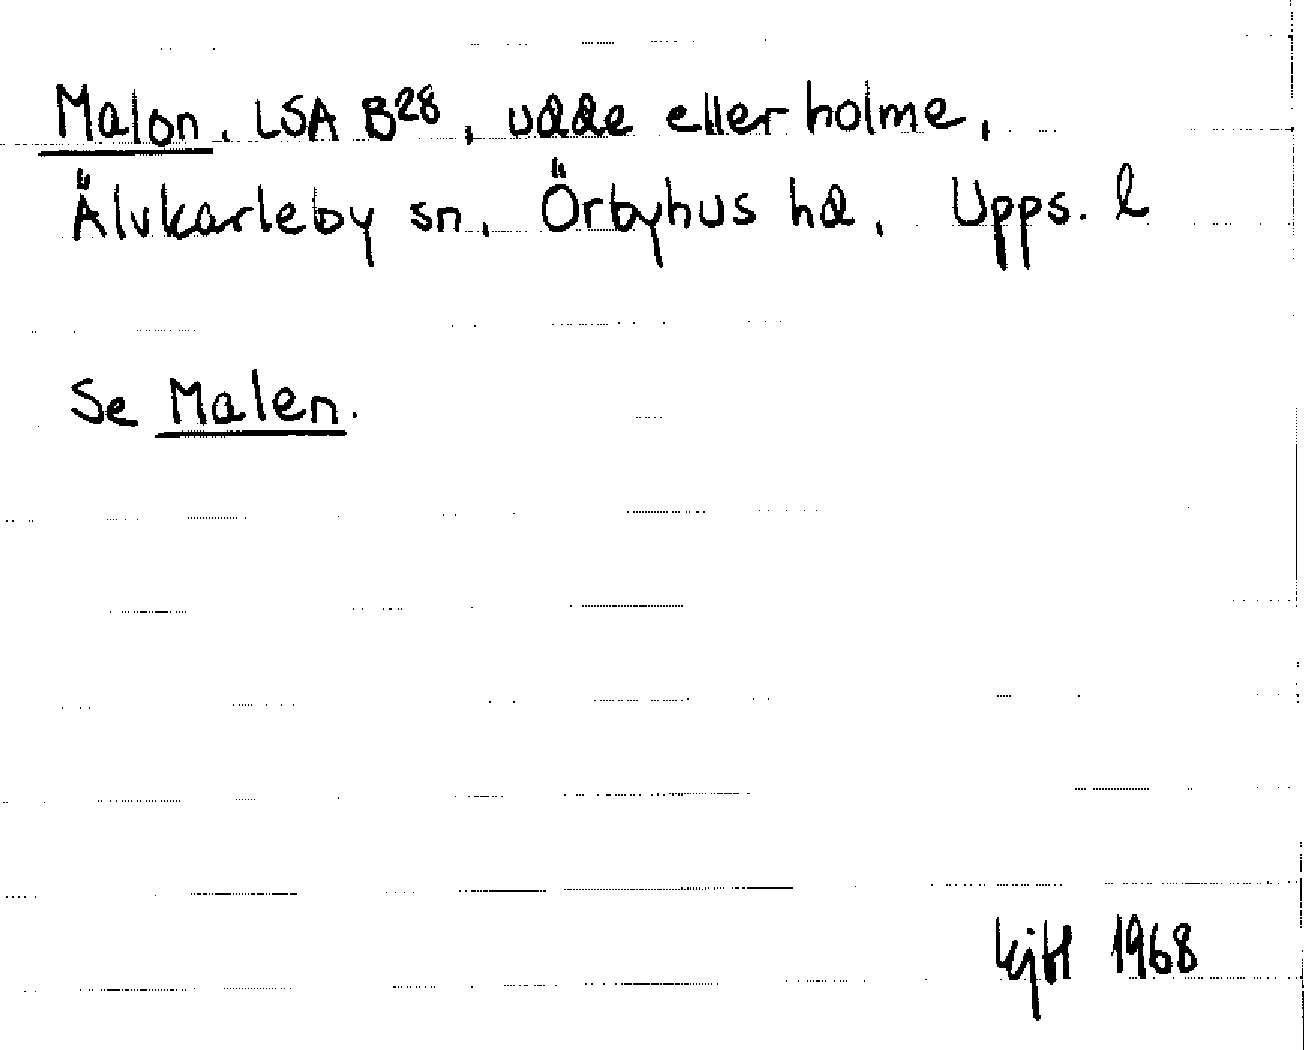 Malon, LSA B28, udde eller holme,
Älvkarleby sn, Örbyhus hd, Upps. l
Se Malen.
1968